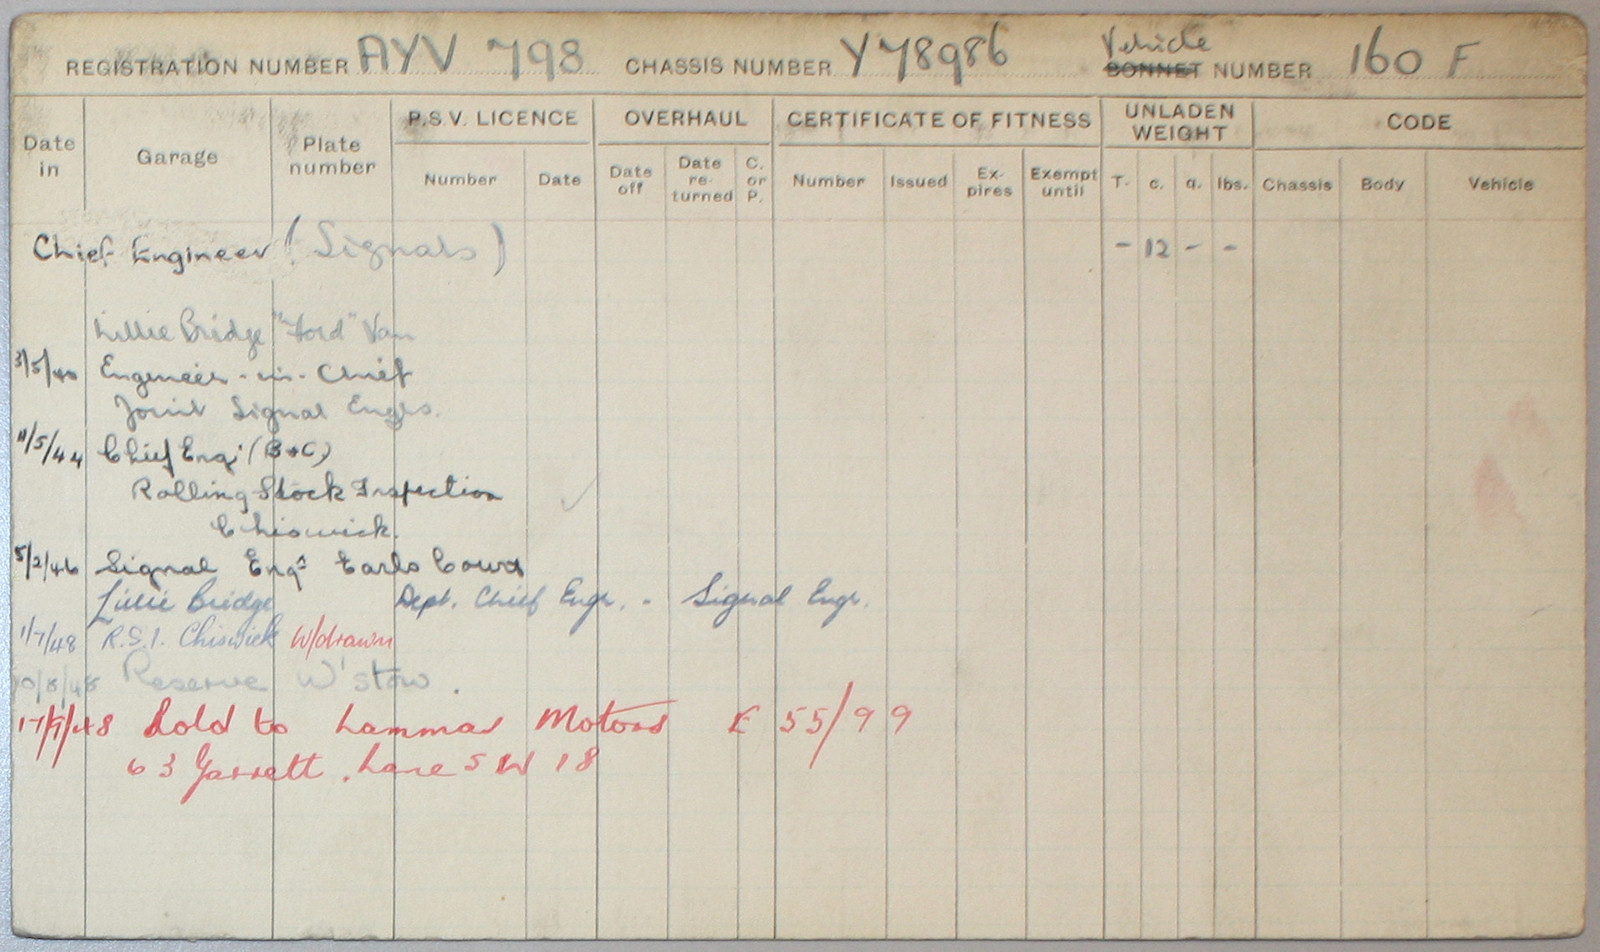 REGISTRATION NUMBER AYV 798 CHASSIS NUMBER Y78986 Vehicle BONNET NUMBER 160 F
Date in Garage Plate number P.S.V. LICENCE OVERHAUL CERTIFICATE OF FITNESS UNLADEN WEIGHT CODE
Number Date Date off Date re-turned C. or P. Number Issued Ex-pires Exempt until T. c. q. lbs. Chassis Body Vehicle
Chief Engineer (Signals) - 12 - -
Lillie Bridge "Ford" Van
3/5/40 Engineer-in-Chief
Joint Signal Engrs.
11/5/44 Chief Engr (B+C)
Rolling Stock Inspection
Chiswick.
5/2/46 Signal Engr Earls Court
Lillie Bridge Dept. Chief Engr. - Signal Engr.
1/7/48 R.S.I. Chiswick W/drawn
10/8/48 Reserve W'stow.
17/9/48 Sold to Lammas Motors E 55/99
63 Garratt Lane SW 18